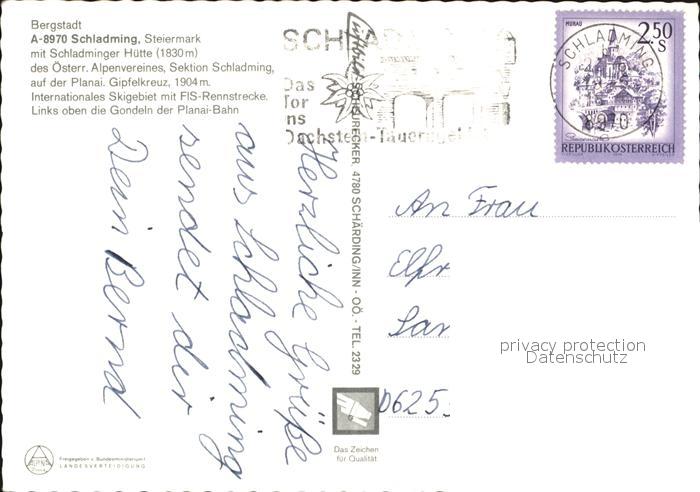 Bergstadt
A-8970 Schladming, Steiermark
mit Schladminger Hütte (1830 m)
des Österr. Alpenvereines, Sektion Schladming,
auf der Planai. Gipfelkreuz, 1904 m.
Internationales Skigebiet mit FIS-Rennstrecke.
Links oben die Gondeln der Planai-Bahn
Das
Tor
ins
Dachstein-Tauerngebiet
MURAU
2.50
S
SCHLADMING
8970
REPUBLIK ÖSTERREICH
4780 SCHÄRDING/INN - OÖ. - TEL. 2329
Herzliche Grüße
aus Schladming
sendet dir
Dein Bernd
An Frau
Elfr
San
D625
privacy protection
Datenschutz
Das Zeichen
für Qualität
ALPNA
Freigegeben v. Bundesministerium f.
LANDESVERTEIDIGUNG